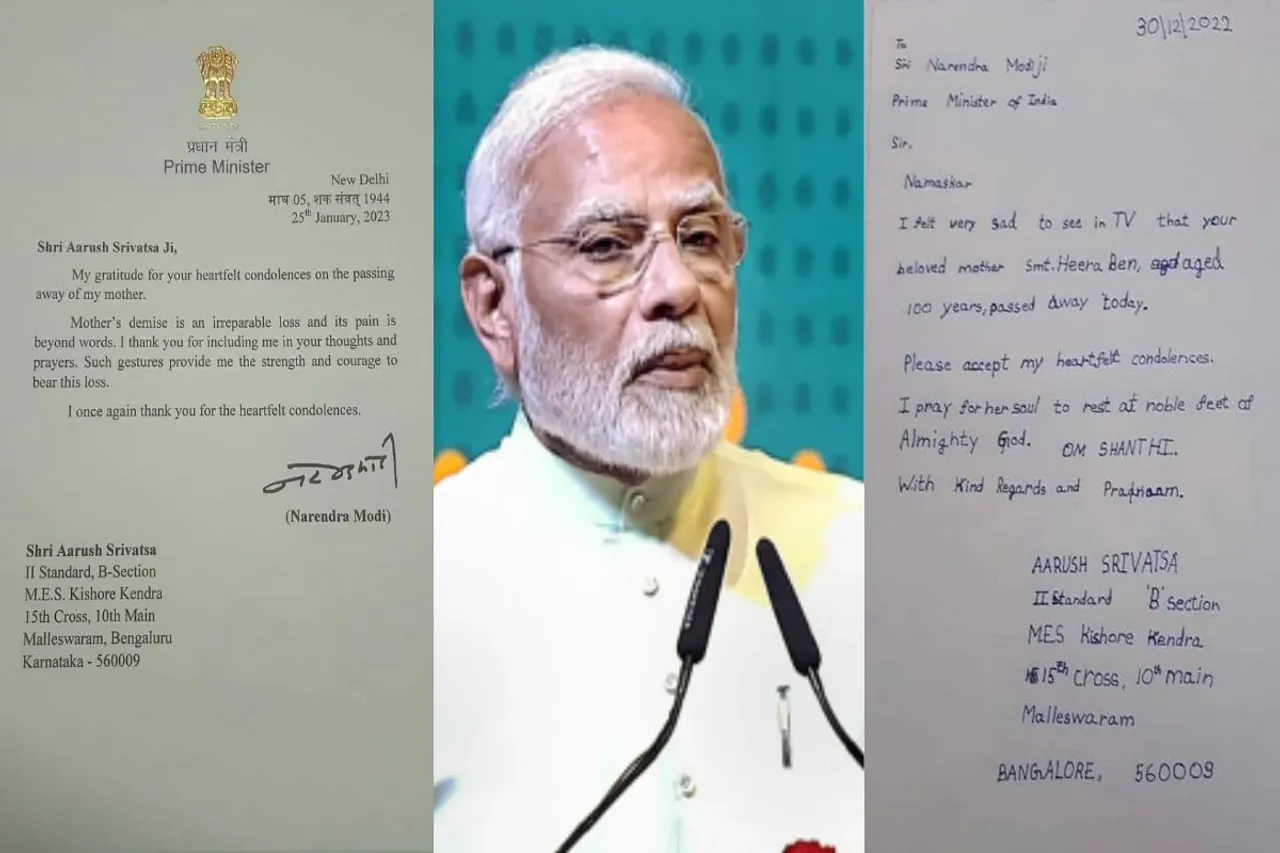 प्रधान मंत्री
Prime Minister
New Delhi
माघ 05, शक संवत् 1944
25th January, 2023
Shri Aarush Srivatsa Ji,
My gratitude for your heartfelt condolences on the passing
away of my mother.
Mother's demise is an irreparable loss and its pain is
beyond words. I thank you for including me in your thoughts and
prayers. Such gestures provide me the strength and courage to
bear this loss.
I once again thank you for the heartfelt condolences.
(Narendra Modi)
Shri Aarush Srivatsa
II Standard, B-Section
M.E.S. Kishore Kendra
15th Cross, 10th Main
Malleswaram, Bengaluru
Karnataka - 560009
30/12/2022
To
Sri Narendra Modiji
Prime Minister of India
Sir,
Namaskar
I felt very sad to see in TV that your
beloved mother Smt. Heera Ben, aged
100 years, passed away today.
Please accept my heartfelt condolences.
I pray for her soul to rest at noble feet of
Almighty God. OM SHANTHI.
With Kind Regards and
AARUSH SRIVATSA
II Standard 'B' section
MES Kishore Kendra
15th cross, 10th main
Malleswaram
BANGALORE, 560009